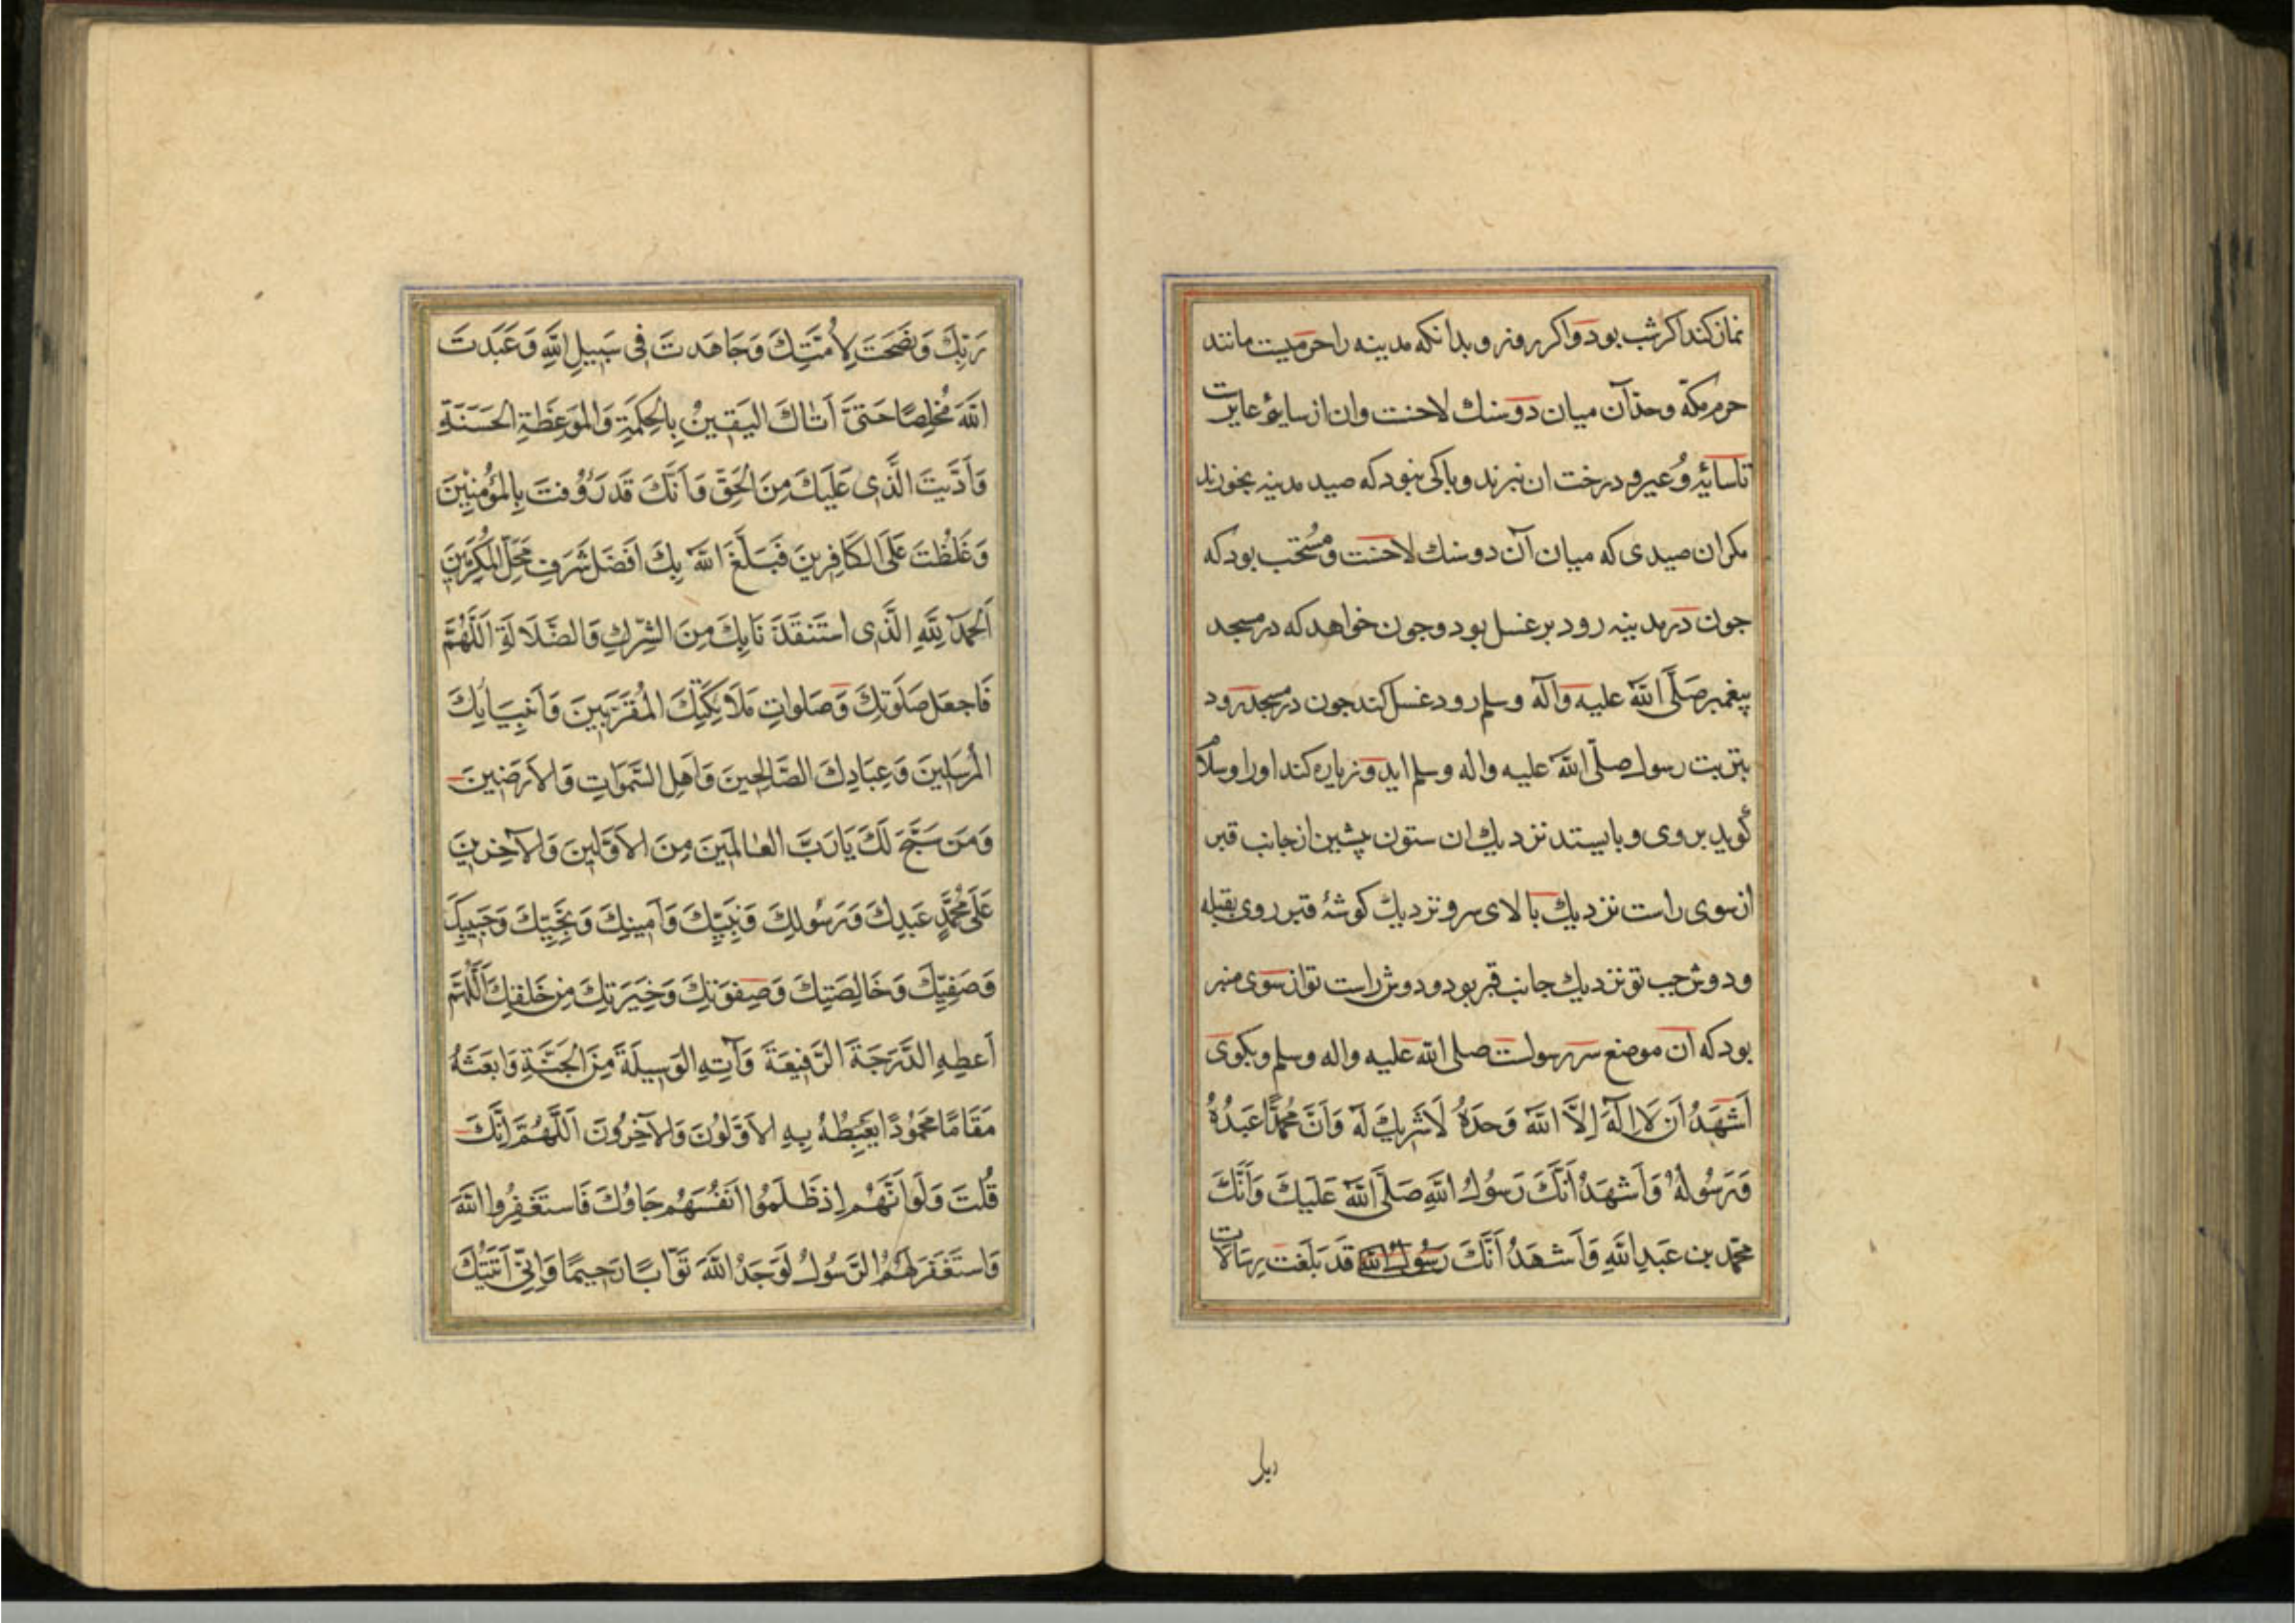 نماز کند اکر شب بود واکر روز و بدانکه مدینه را حرمیست مانند
حرم مکّه وحدّ آن میان دو سنك لاخست وان از سایهٔ عایرست
تا سایهٔ وُعیر و درخت ان نبرند و باکی نبود که صید مدینه بخورند
مکر ان صیدی که میان آن دو سنك لاخست ومُستحّب بود که
جون در مدینه رود بر غسل بود وجون خواهد که در مسجد
پیغمبر صَلَّی اللّٰهُ علیه وآله وسلم رود غسل کند جون در مسجد رود
بتربت رسول صلّی اللّٰه علیه واله وسلم اید و زیاره کند اورا وسلام
کوید بر وی و بایستد نزدیك ان ستون پیشین از جانب قبر
از سوی راست نزدیك بالای سر و نزدیك کوشهٔ قبر روی بقبله
ودوش جب تو نزدیك جانب قبر بود ودوش راست تو از سوی منبر
بود که ان موضع سر رسولست صلی اللّٰه علیه واله وسلم وبکوی
اَشْهَدُ اَنْ لَا اِلٰهَ اِلَّا اللّٰهُ وَحْدَهُ لَاشَرِیكَ لَهُ وَاَنَّ مُحَمَّدًا عَبْدُهُ
وَرَسُولُهُ وَاَشْهَدُ اَنَّكَ رَسُولُ اللّٰهِ صَلَّی اللّٰهُ عَلَیْكَ وَاَنَّكَ
مُحَمَّد بن عَبْدِ اللّٰهِ وَاَشْهَدُ اَنَّكَ رَسُولُ اللّٰهِ قَدْ بَلَّغْتَ رِسَالَاتِ
ربك
رَبِّكَ وَنَصَحْتَ لِاُمَّتِكَ وَجَاهَدْتَ فِی سَبِیلِ اللّٰهِ وَعَبَدْتَ
اللّٰهَ مُخْلِصًا حَتَّیٰ اَتَاكَ الیَقِینُ بِالْحِکْمَةِ وَالْمَوْعِظَةِ الْحَسَنَةِ
وَاَدَّیْتَ الَّذِی عَلَیْكَ مِنَ الْحَقِّ وَاَنَّكَ قَدْ رَؤُفْتَ بِالْمُؤْمِنِینَ
وَغَلُظْتَ عَلَی الْکَافِرِینَ فَبَلَغَ اللّٰهُ بِكَ اَفْضَلَ شَرَفِ مَحَلِّ الْمُکَرَّمِینَ
اَلْحَمْدُ لِلّٰهِ الَّذِی اسْتَنْقَذَنَا بِكَ مِنَ الشِّرْكِ وَالضَّلَالَةِ اَللّٰهُمَّ
فَاجْعَلْ صَلَوٰتِكَ وَصَلَوَاتِ مَلَائِکَتِكَ الْمُقَرَّبِینَ وَاَنْبِیَائِكَ
الْمُرْسَلِینَ وَعِبَادِكَ الصَّالِحِینَ وَاَهْلِ السَّمٰوَاتِ وَالْاَرَضِینَ
وَمَنْ سَبَّحَ لَكَ یَا رَبَّ الْعَالَمِینَ مِنَ الْاَوَّلِینَ وَالْآخِرِینَ
عَلَی مُحَمَّدٍ عَبْدِكَ وَرَسُولِكَ وَنَبِیِّكَ وَاَمِینِكَ وَنَجِیِّكَ وَحَبِیبِكَ
وَصَفِیِّكَ وَخَالِصَتِكَ وَصَفْوَتِكَ وَخِیَرَتِكَ مِنْ خَلْقِكَ اَللّٰهُمَّ
اَعْطِهِ الدَّرَجَةَ الرَّفِیعَةَ وَآتِهِ الْوَسِیلَةَ مِنَ الْجَنَّةِ وَابْعَثْهُ
مَقَامًا مَحْمُودًا یَغْبِطُهُ بِهِ الْاَوَّلُونَ وَالْآخِرُونَ اَللّٰهُمَّ اِنَّكَ
قُلْتَ وَلَوْ اَنَّهُمْ اِذْ ظَلَمُوا اَنْفُسَهُمْ جَاؤُكَ فَاسْتَغْفَرُوا اللّٰهَ
وَاسْتَغْفَرَ لَهُمُ الرَّسُولُ لَوَجَدُوا اللّٰهَ تَوَّابًا رَحِیمًا وَاِنِّی اَتَیْتُكَ